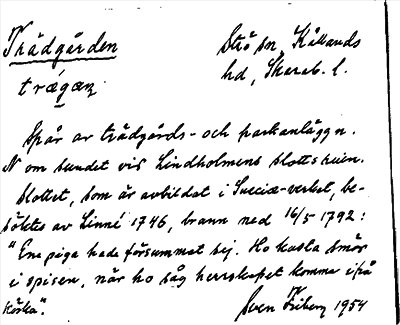 Trädgården
Strö sn, Kållands
hd, Skarab. l.
trǽgæɳ
Spår av trädgårds- och parkanläggn.
N om sundet vid Lindholmens slottsruin.
Slottet, som är avbildat i Sueciæ-verket, be-
söktes av Linné 1746, brann ned 16/5 1792:
"Ene piga hade försummat sej. Ho kasta smör
i spisen, när ho såg herrskapet komma ifrå
körka".
Sven Friberg 1954